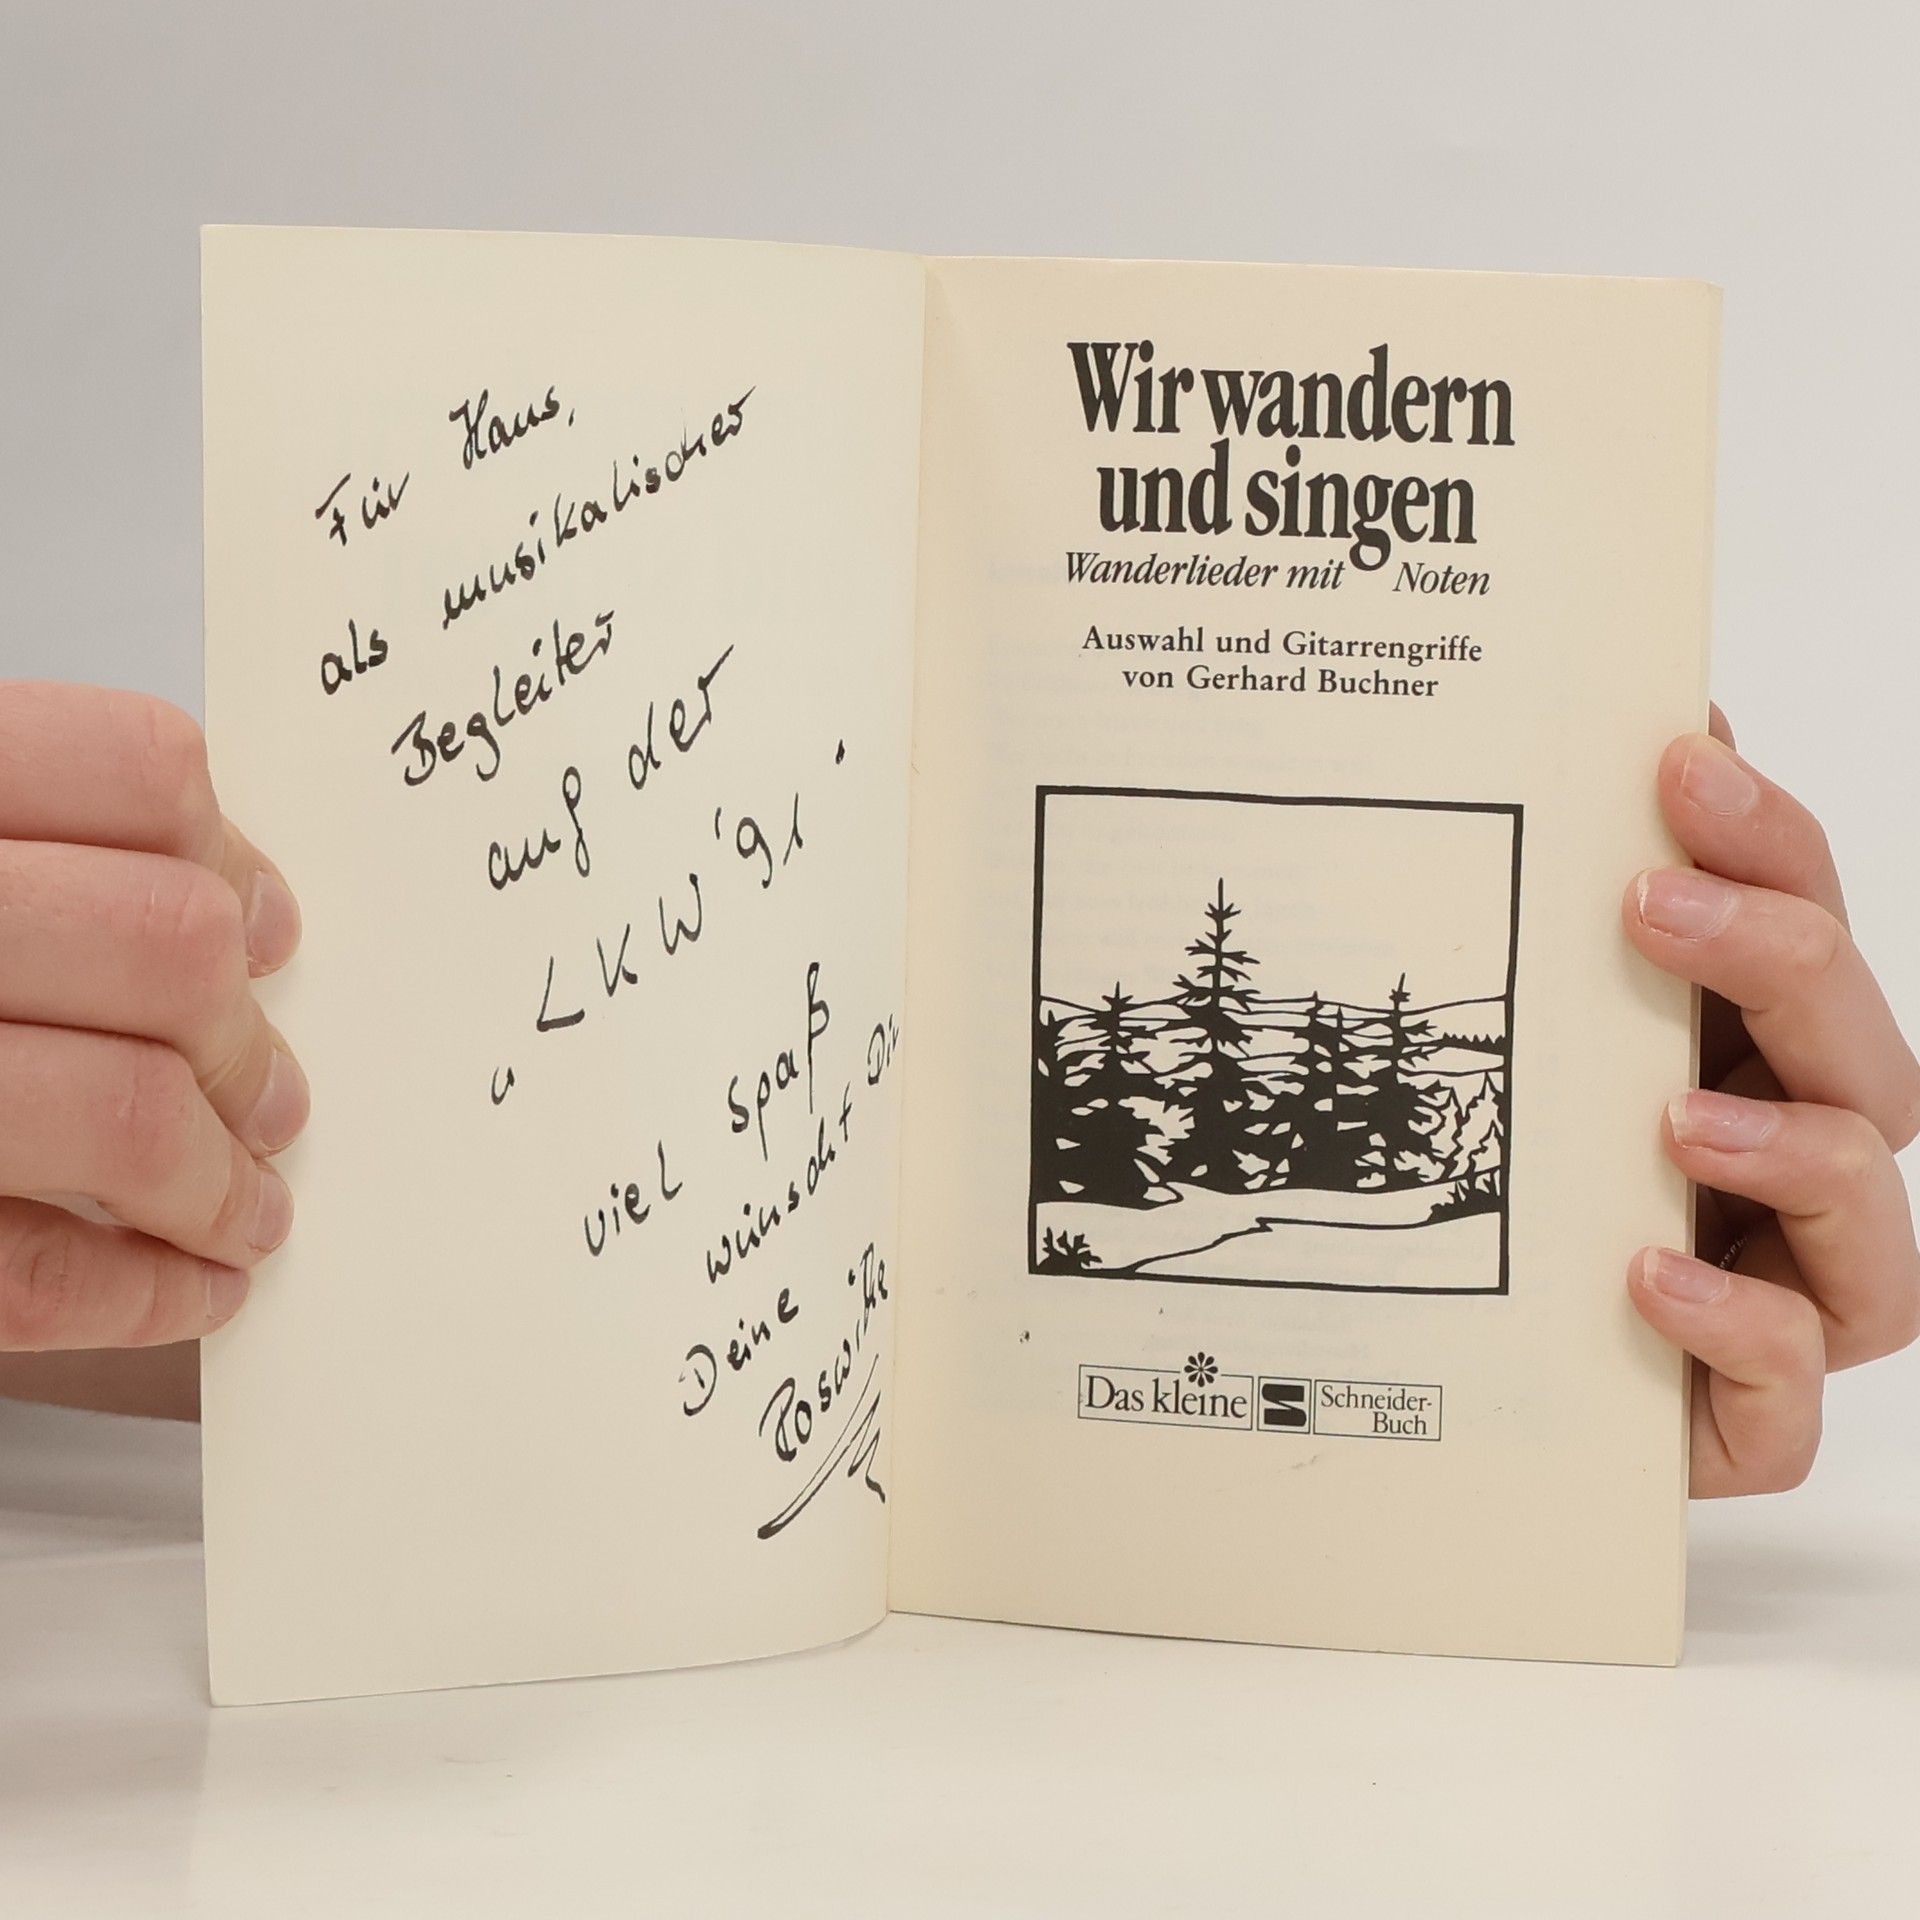 Für Hans,
als musikalischer
Begleiter
auf der
LKW '91.
viel Spaß
wünscht Dir
Deine
Roswitha
Wir wandern
und singen
Wanderlieder mit Noten
Auswahl und Gitarrengriffe
von Gerhard Buchner
Das kleine S Schneider-
Buch